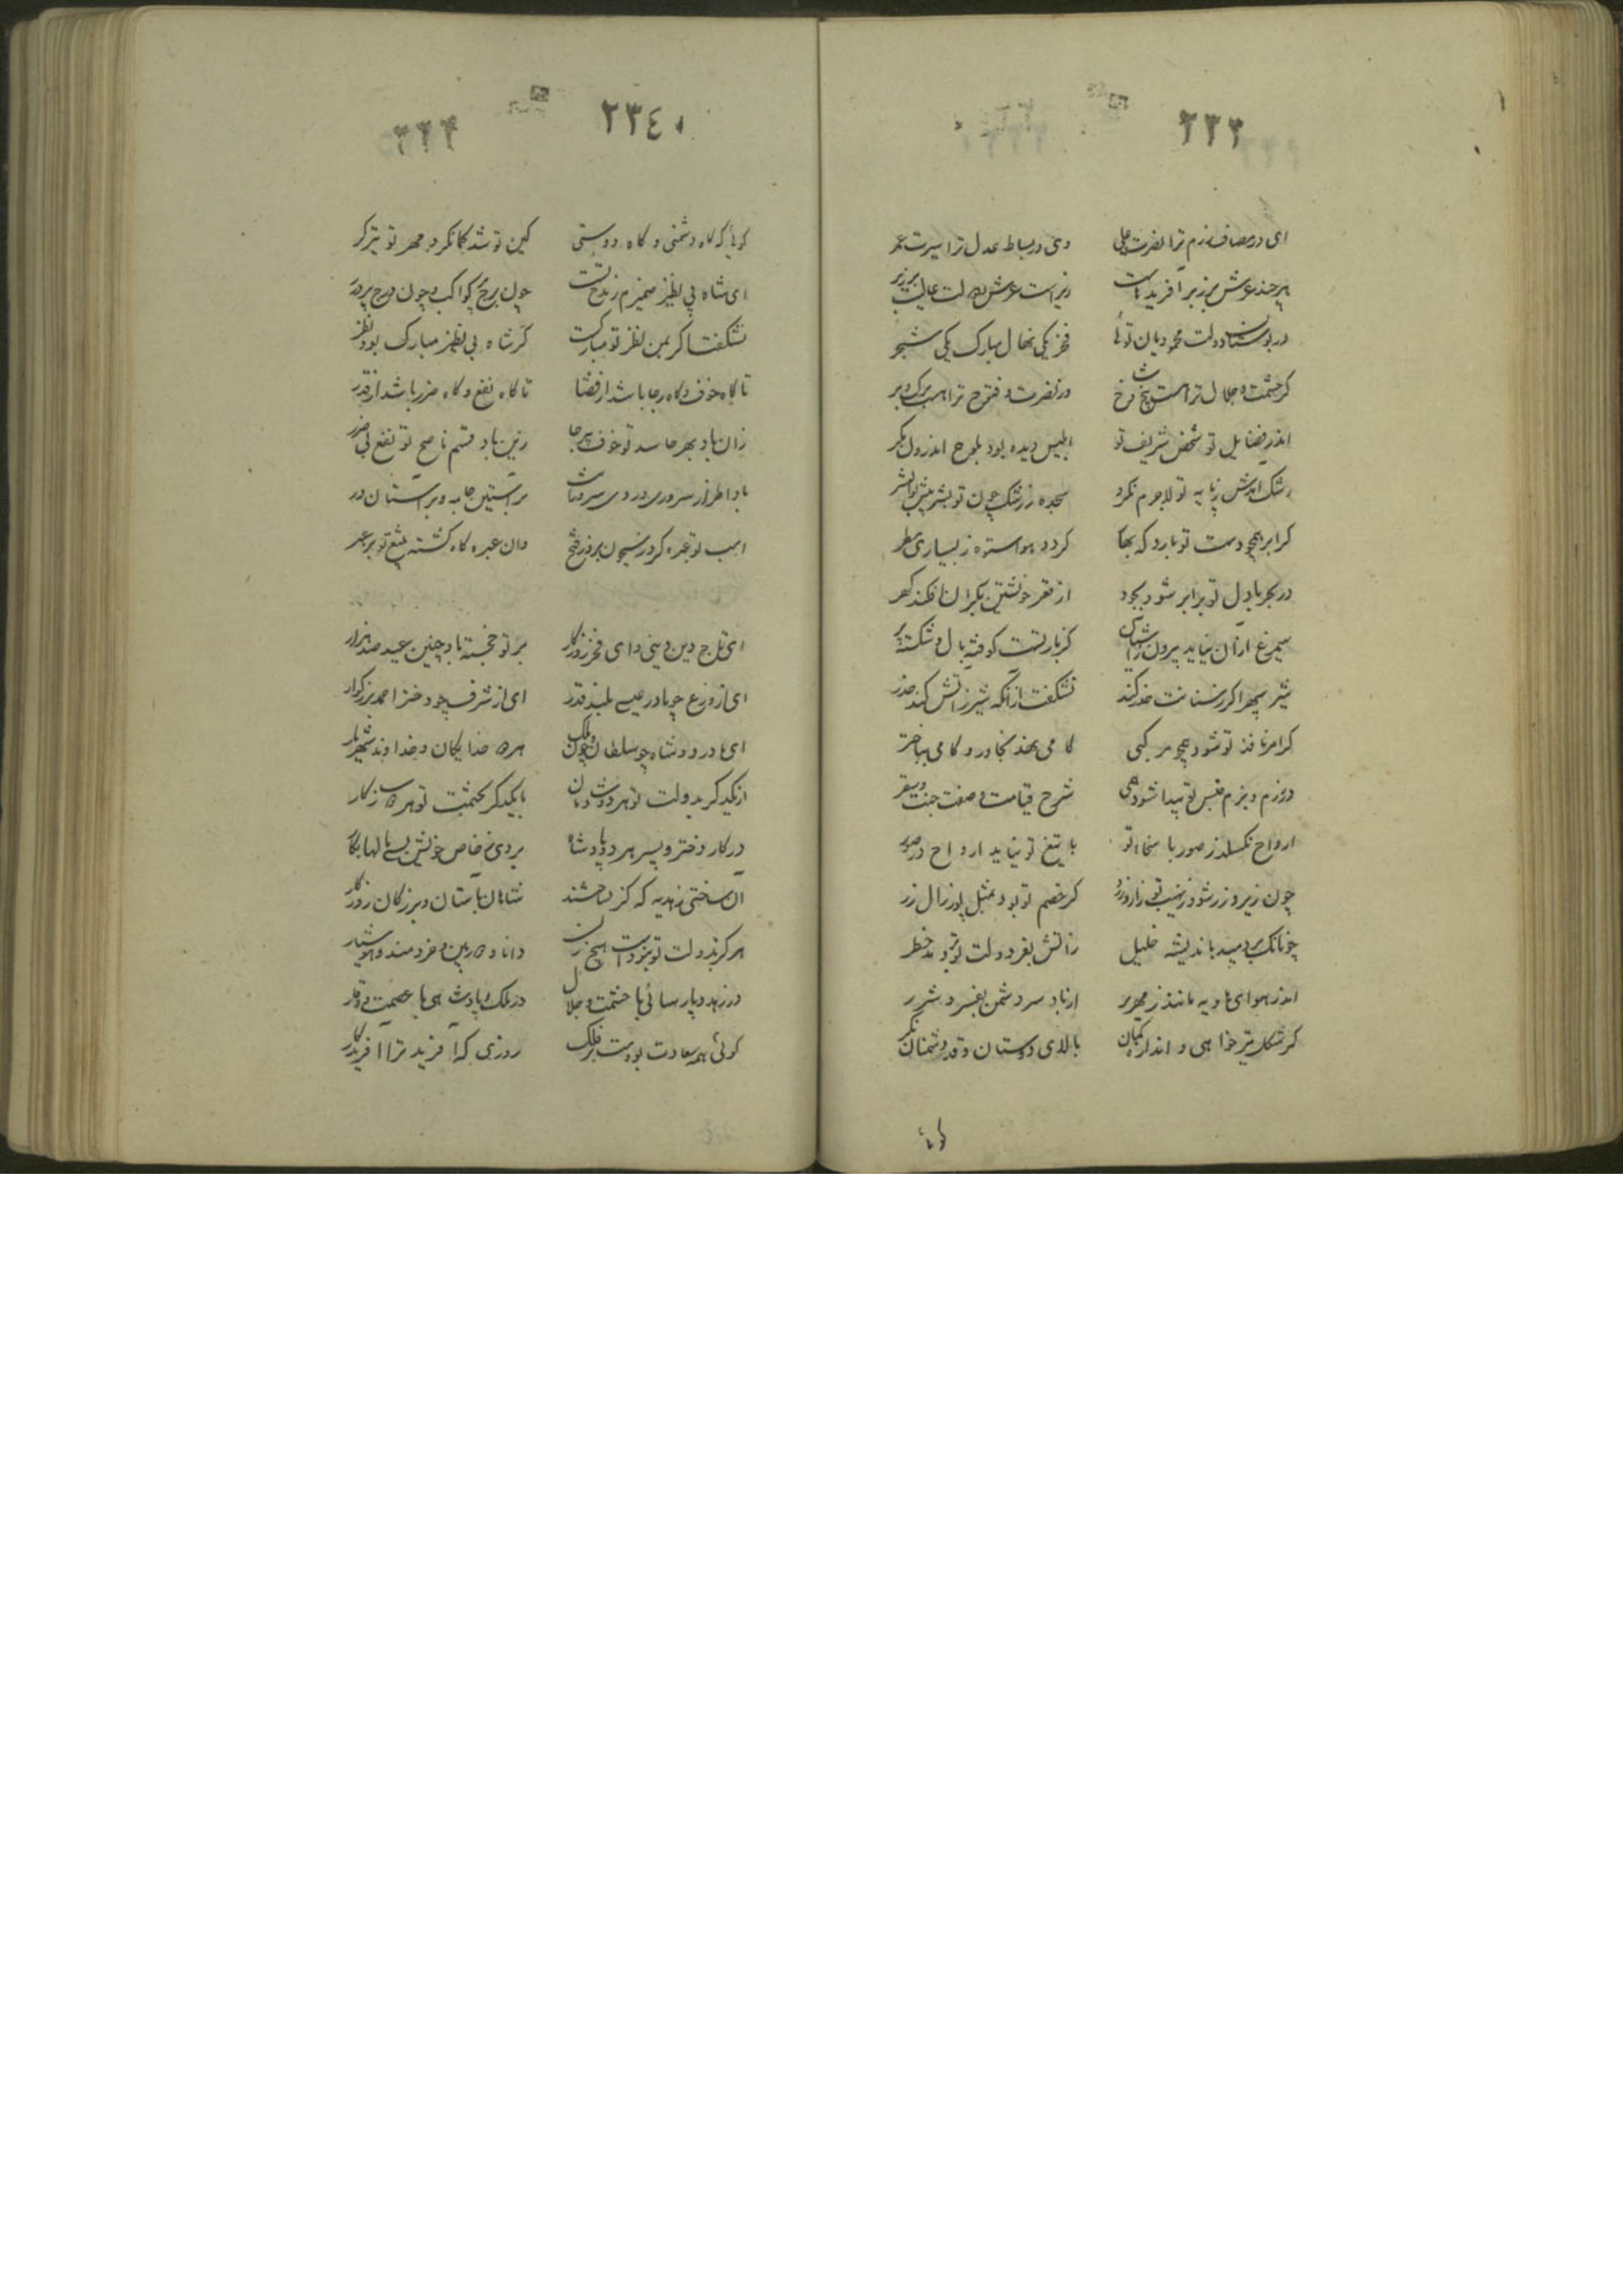 ۲۳۳
ای در مصاف رزم ترا نصرت علی وی در بساط عدل ترا سیرت عمر
هرچند عرش برزبر آفریدهاست زیر است عرش و دولت عالیت بر زبر
در بوستان دولت محمودیان توئی فخر یکی نهال مبارک یکی شجر
کز حشمت و جلال ترا هست بیخ و شاخ وز نصرت و فتوح ترا هست برک و بر
اندر فضایل تو شخص شریف تو ابلیس دیده بود بلوح اندرون مکر
رشک آمدش ز پایه تو لاجرم نکرد سجده ز رشک چون تو بشر پیش بوالبشر
کر ابر همچو دست تو بارد که بها کردد هوا ستوه ز بسیاری مطر
ور بحر با دل تو برابر شود بجود از قعر خویشتن بکران افکند کهر
سیمرغ از آن نیاید بیرون ز آشیان کز بار تست کوفته بال و شکسته پر
شیر سپهر اکر ز سنانت حذر کند نشکفت از آنکه شیر ز آتش کند حذر
کر امر نافذ تو شود همچو مرکبی کامی نهد بخاور و کامی بباختر
در رزم و بزم جنس تو پیدا شود همی شرح قیامت و صفت جنت و سقر
ارواح نکسلد ز صور با سخای تو با تیغ تو نیاید ارواح در صور
چون زیر و زر شود ز نهیب تو زار و زرد کر خصم تو بود بمثل پور زال زر
چونانک بر دمید باندیشه خلیل ز آتش بفر دولت تو
اندر هوای بادیه مانند زمهریر از باد سرد دشمن بفسرد شرر
کر شکل تیر خواهی و اندازه کمان بالای دوستان و قد دشمنان نکر
کویا
۲۳٤
کویا که کاه دشمنی و کاه دوستی کین تو شد کمانکر و مهر تو تیرکر
ای شاه بی نظیر ضمیرم ز مدح تست چون برج پر کواکب و چون درج پر درر
نشکفت اکر بمن نظر تو مبارکست کز شاه بی نظیر مبارک بود نظر
تا کاه خوف و کاه رجا باشد از قضا تا کاه نفع و کاه ضرر باشد از قدر
زان باد بهر حاسد تو خوف بی رجا زین باد قسم ناصح تو نفع بی ضرر
بادا طراز سروری و روی سروریت بر آستین جامه و بر آستان در
اسب تو عبره کرد ز سیحون بروز فتح وان عبره کاه کشته بتیغ تو بر عبر
ای تاج دین و دینی و ای فخر روزکار بر تو خجسته باد چنین عید صد هزار
ای از ورع چو مادر عیسی بلند قدر ای از شرف چو دختر احمد بزرکوار
ای مادر دو شاه چو سلطان و چون ملک هر دو خدایکان و خداوند شهریار
از یکدکر بدولت تو هر دو شادمان با یکدکر بحشمت تو هر دو سازکار
در کار دختر و پسر هر دو پادشاه بردی ز خاص خویش بسی مالها بکار
آن ساختی ز هدیه که هرکز نساختند شاهان باستان و بزرکان روزکار
هرکز بدولت تو نبودست هیچ زن دانا و دوربین و خردمند و هوشیار
در زهد و پارسائی با حشمت و جلال در ملک و پادشاهی با عصمت و وقار
کوئی همه سعادت بودست بر فلک روزی که آفرید ترا آفریدکار